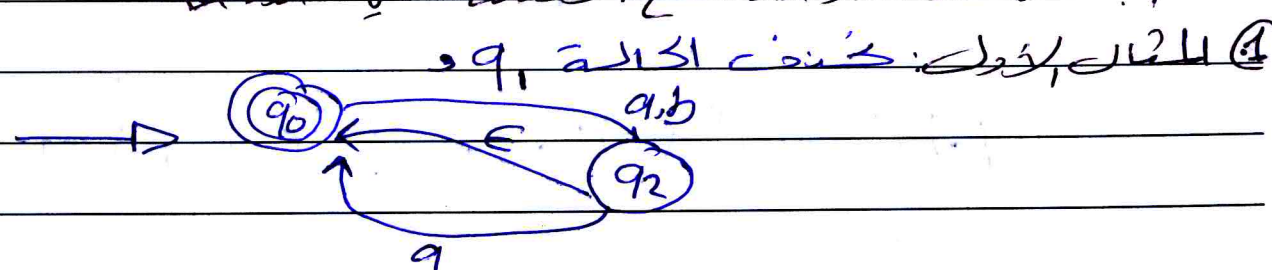 ① المثال الأول: نحذف الحالة q1 و
q0
a,b
ϵ
q2
a